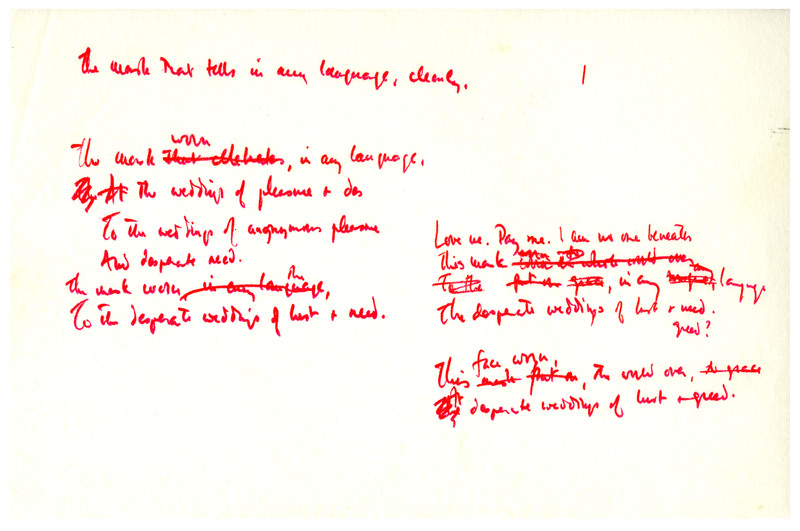 The mask that tells in any language, cleanly.
1
worn
The mask that celebrates, in any language.
At the weddings of pleasure + des
To the weddings of anonymous pleasure
And desperate need.
the
The mask worn, in any language,
To the desperate weddings of lust + need.
Love me. Pay me. I am no one beneath
this mask
To the put on in any language
The desperate weddings of lust + need.
greed?
face worn,
This mask put on, the world over, to grace
At
desperate weddings of lust + greed.